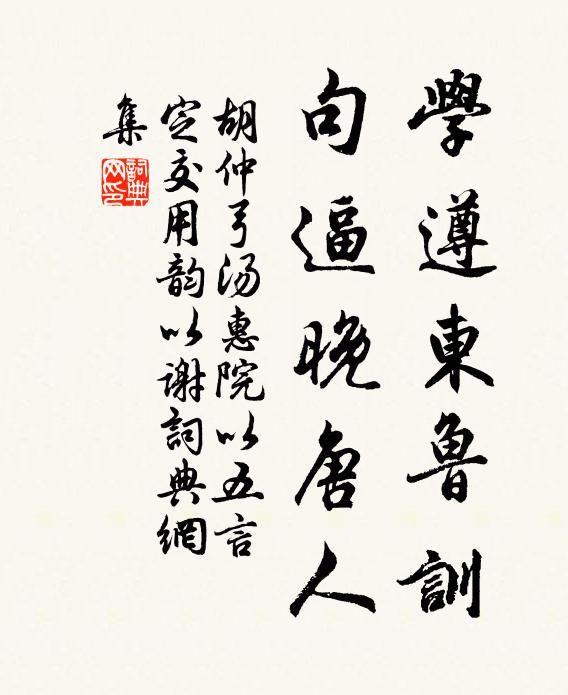 學遵東魯訓
句逼晚唐人
胡仲弓湯惠院以五言
定交用韵以谢詞典網
集
詞典
网印